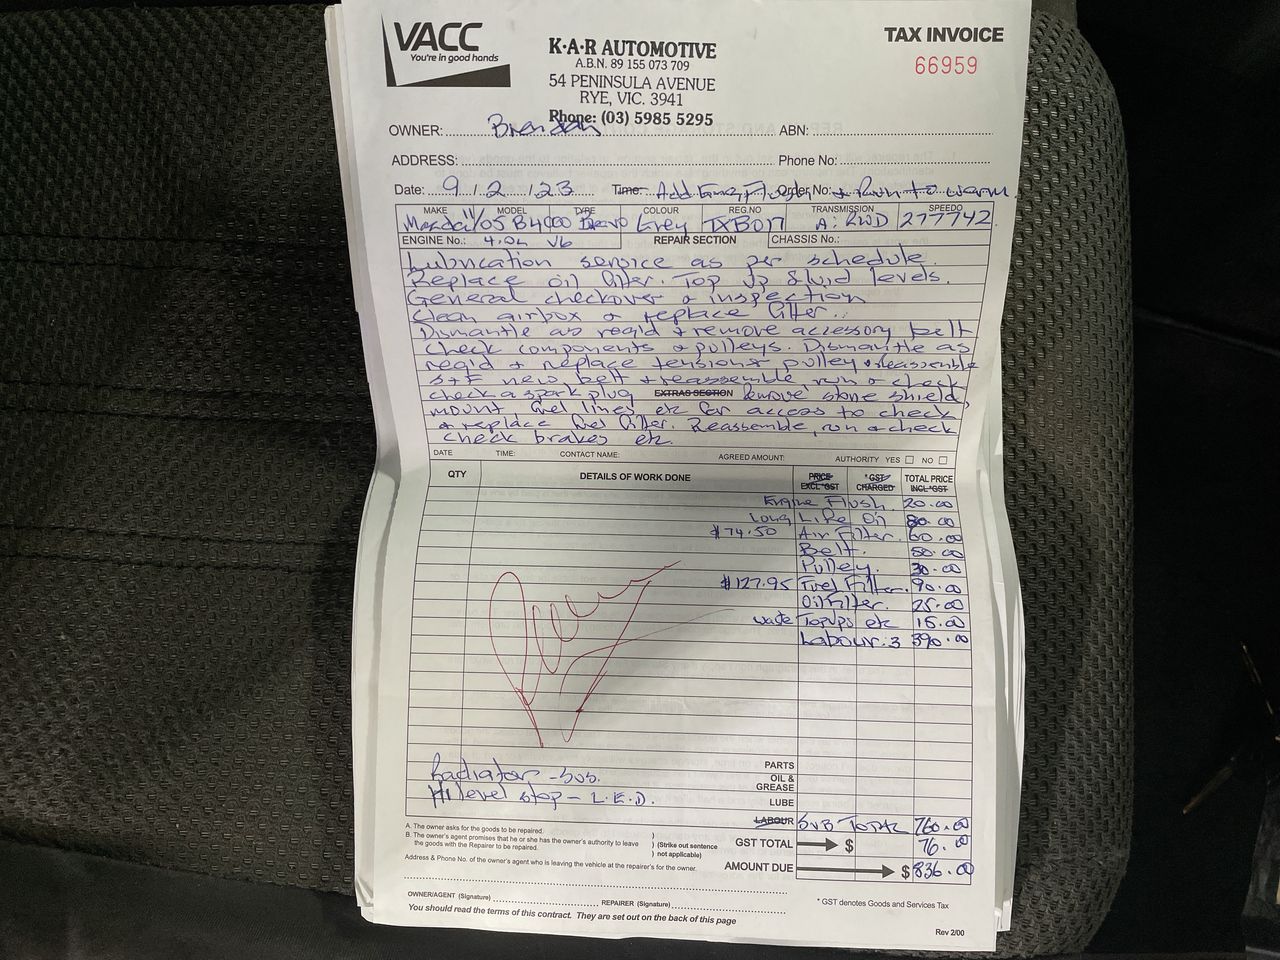 VACC
You're in good hands
K·A·R AUTOMOTIVE
A.B.N. 89 155 073 709
54 PENINSULA AVENUE
RYE, VIC. 3941
Phone: (03) 5985 5295
TAX INVOICE
66959
OWNER: Brendan ABN:
ADDRESS: Phone No:
Date: 9 / 2 / 23 Time: Add Eng Flush Order No: & Run to warm
MAKE MODEL TYPE COLOUR REG.NO TRANSMISSION SPEEDO
Mazda 11/05 B4000 Bravo Grey TXB017 A: 2WD 277742
ENGINE No.: 4.0L V6 REPAIR SECTION CHASSIS No.:
Lubrication service as per schedule.
Replace oil filter. Top up fluid levels.
General checkover & inspection
Clean airbox & replace filter.
Dismantle as req'd & remove accessory belt
check components & pulleys. Dismantle as
req'd & replace tensioner pulley & reassemble
S+F new belt & reassemble, run & check
check a spark plug EXTRAS SECTION Remove stone shield,
mount, fuel lines, etc for access to check
& replace fuel filter. Reassemble, run & check
check brakes etc.
DATE TIME: CONTACT NAME: AGREED AMOUNT: AUTHORITY YES NO
QTY DETAILS OF WORK DONE PRICE EXCL *GST *GST CHARGED TOTAL PRICE INCL *GST
Engine Flush. 20.00
Long Life Oil 80.00
$74.50 Air Filter. 60.00
Belt. 50.00
Pulley. 30.00
$127.95 Fuel Filter. 90.00
Oil Filter. 25.00
waste Topups etc 15.00
Labour: 3 390.00
Radiator - sus.
Hi level stop - L.E.D.
PARTS
OIL & GREASE
LUBE
LABOUR SUB TOTAL 760.00
GST TOTAL $ 76.00
AMOUNT DUE $ 836.00
A. The owner asks for the goods to be repaired.
B. The owner's agent promises that he or she has the owner's authority to leave
the goods with the Repairer to be repaired.
) (Strike out sentence
) not applicable)
Address & Phone No. of the owner's agent who is leaving the vehicle at the repairer's for the owner.
OWNER/AGENT (Signature) REPAIRER (Signature)
* GST denotes Goods and Services Tax
You should read the terms of this contract. They are set out on the back of this page
Rev 2/00